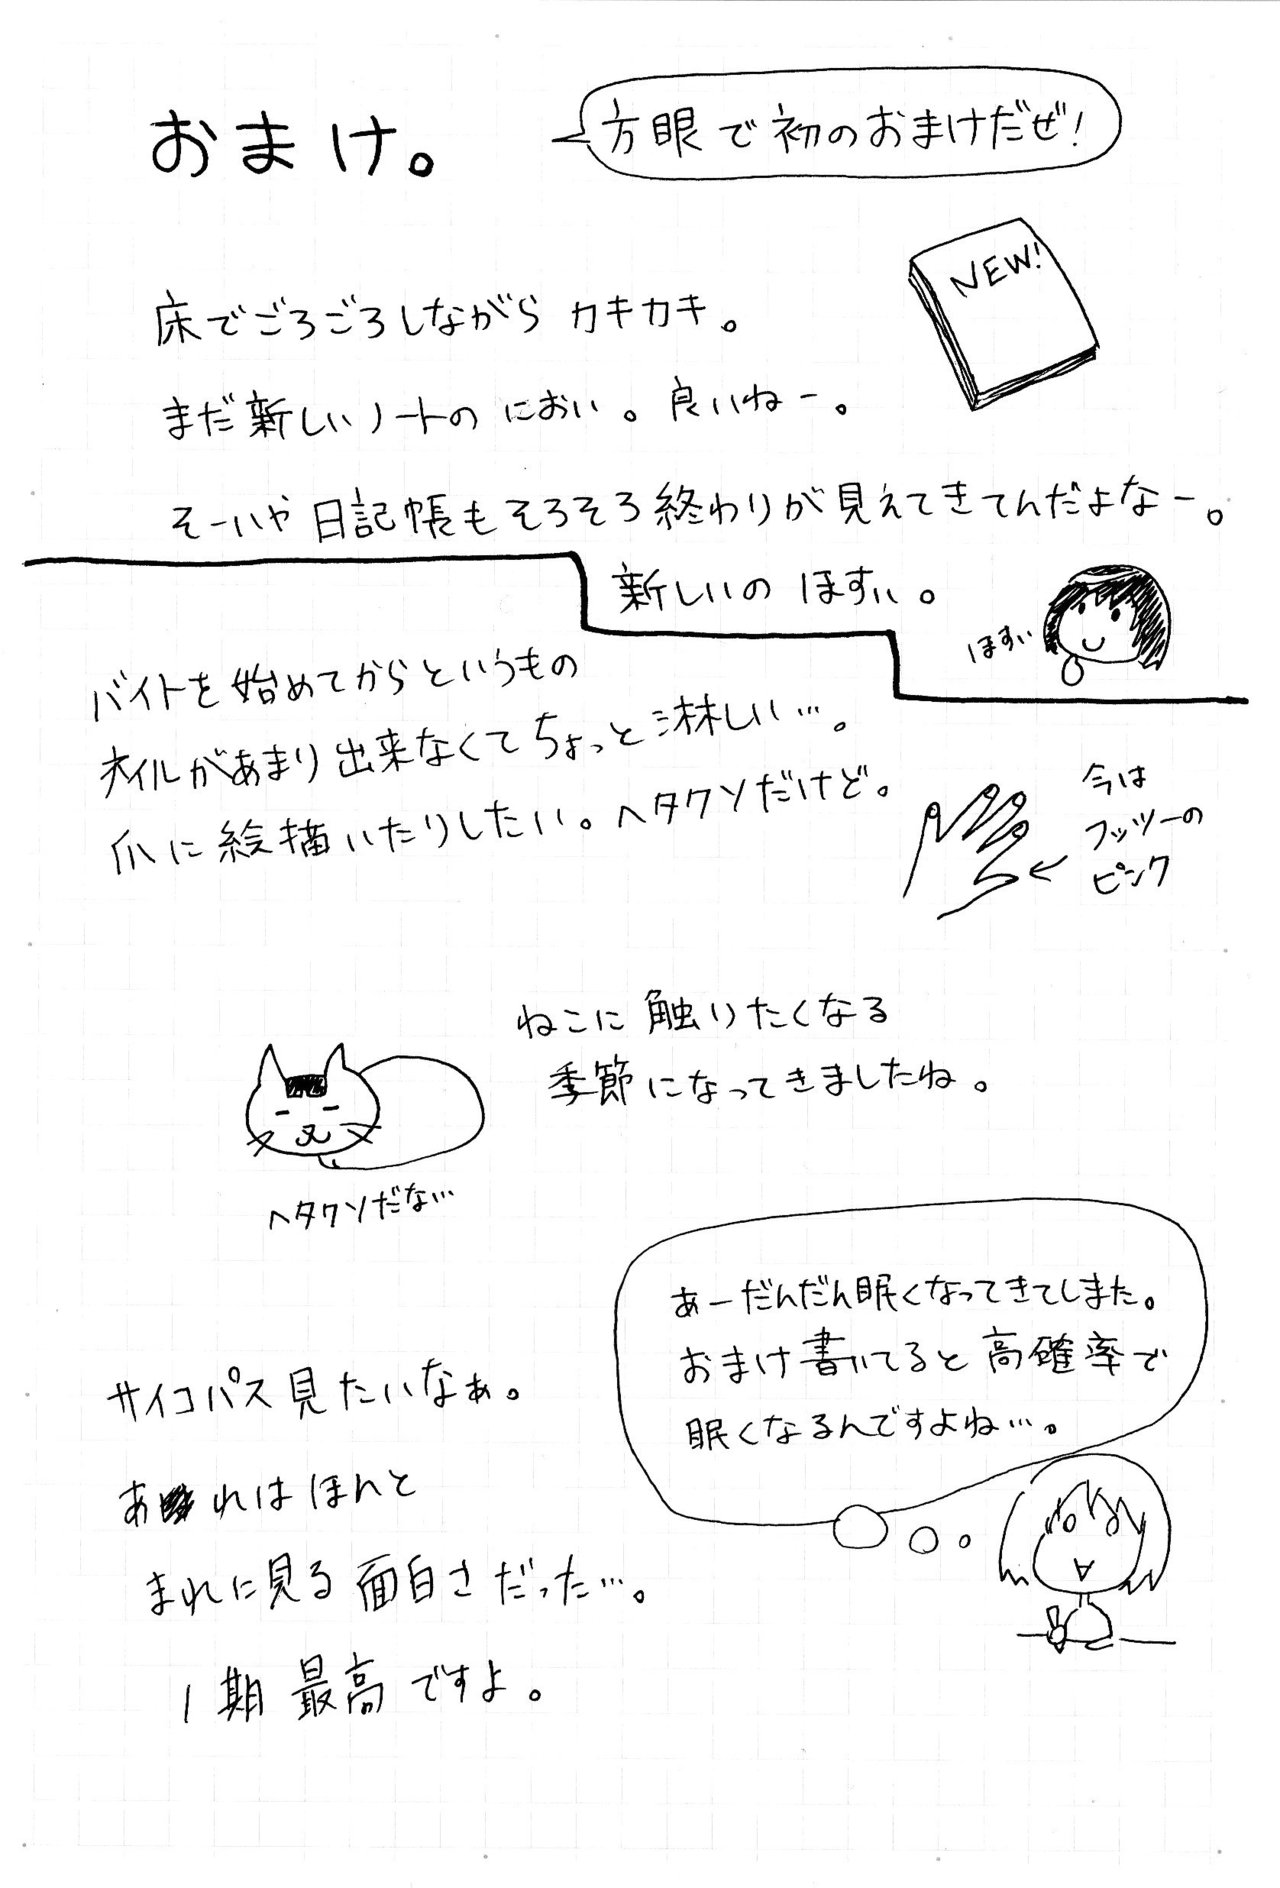 おまけ。
方眼で初のおまけだぜ!
NEW!
床でごろごろしながら カキカキ。
まだ新しいノートの におい。良いねー。
そーいや日記帳もそろそろ終わりが見えてきてんだよなー。
新しいの ほすぃ。
ほすぃ
バイトを始めてからというもの
ネイルがあまり出来なくてちょっと淋しい…。
爪に絵描いたりしたい。ヘタクソだけど。
今は
フッツーの
ピンク
ねこに 触りたくなる
季節になってきましたね。
ヘタクソだな…
あーだんだん眠くなってきてしまた。
おまけ書いてると高確率で
眠くなるんですよね…。
サイコパス見たいなぁ。
あれはほんと
まれに見る面白さだった…。
1期 最高ですよ。